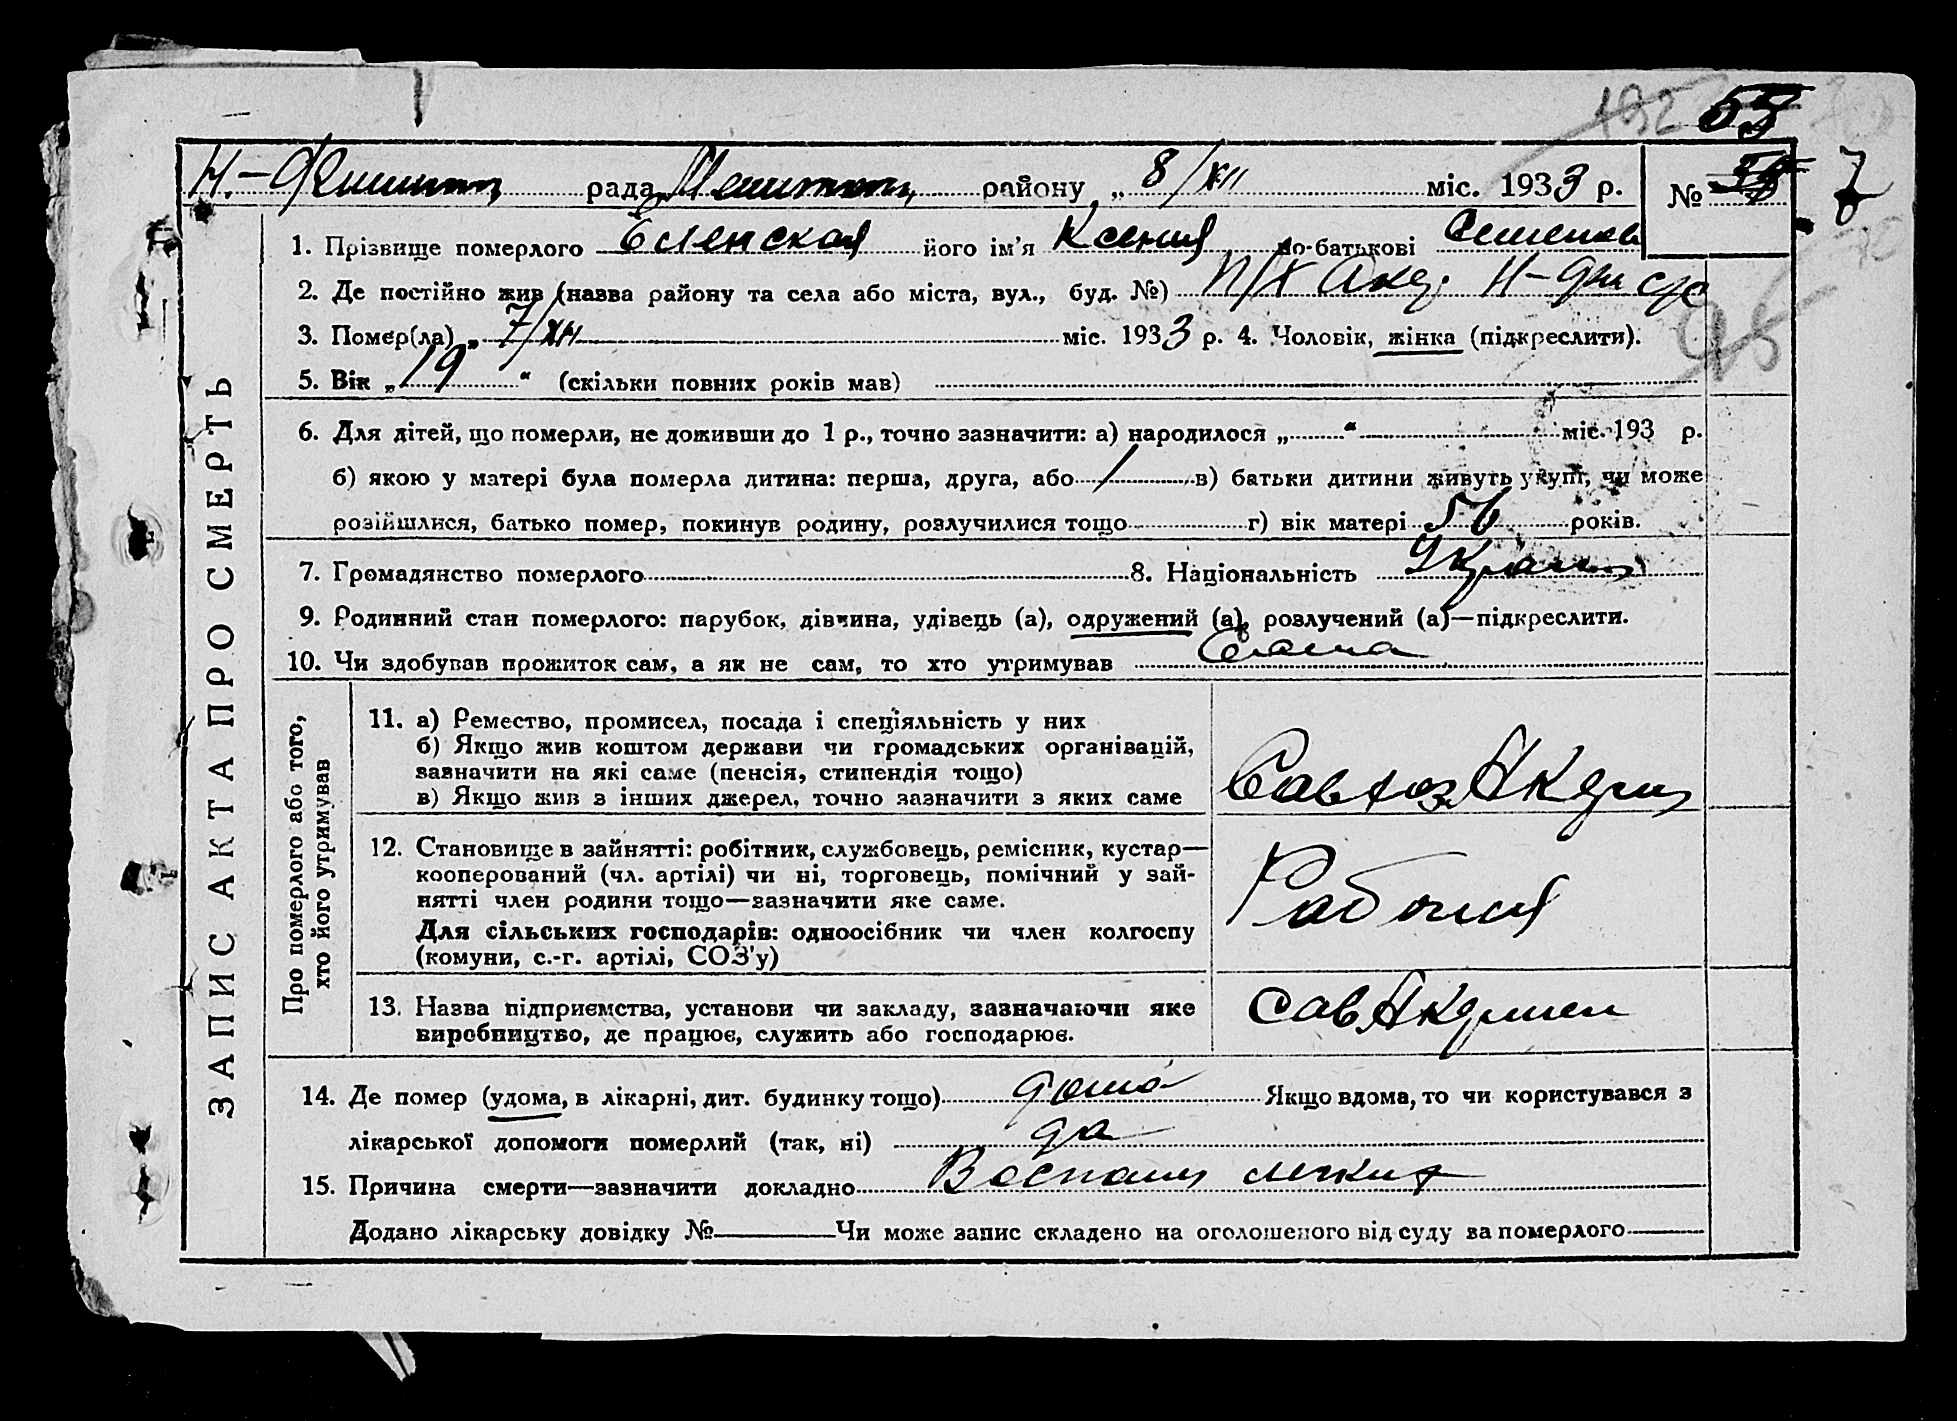 192 55
рада району „ 8/XII міс. 1933 р. №
7
1. Прізвище померлого Еленская його ім'я Ксения по-батькові
2. Де постійно жив (назва району та села або міста, вул., буд. №)
3. Помер(ла) „ 7/XII міс. 1933 р. 4. Чоловік, жінка (підкреслити).
95
5. Вік „ 19 “ (скільки повних років мав)
6. Для дітей, що померли, не доживши до 1 р., точно зазначити: а) народилося „ “ міс. 193 р.
б) якою у матері була померла дитина: перша, друга, або / в) батьки дитини живуть укупі, чи може
розійшлися, батько помер, покинув родину, розлучилися тощо г) вік матері років.
7. Громадянство померлого 8. Національність Украин
9. Родинний стан померлого: парубок, дівчина, удівець (а), одружений (а), розлучений (а)—підкреслити.
10. Чи здобував прожиток сам, а як не сам, то хто утримував Сама
ЗАПИС АКТА ПРО СМЕРТЬ
Про померлого або того, хто його утримував
11. а) Ремество, промисел, посада і спеціяльність у них
б) Якщо жив коштом держави чи громадських організацій,
зазначити на які саме (пенсія, стипендія тощо)
в) Якщо жив з інших джерел, точно зазначити з яких саме
Савхоз
12. Становище в зайнятті: робітник, службовець, ремісник, кустар—
кооперований (чл. артілі) чи ні, торговець, помічний у зай-
нятті член родини тощо—зазначити яке саме.
Для сільських господарів: одноосібник чи член колгоспу
(комуни, с.-г. артілі, СОЗ'у)
Рабочая
13. Назва підприємства, установи чи закладу, зазначаючи яке
виробництво, де працює, служить або господарює.
14. Де помер (удома, в лікарні, дит. будинку тощо) дома Якщо вдома, то чи користувався з
лікарської допомоги померлий (так, ні) да
15. Причина смерти—зазначити докладно Воспален легких
Додано лікарську довідку № Чи може запис складено на оголошеного від суду за померлого